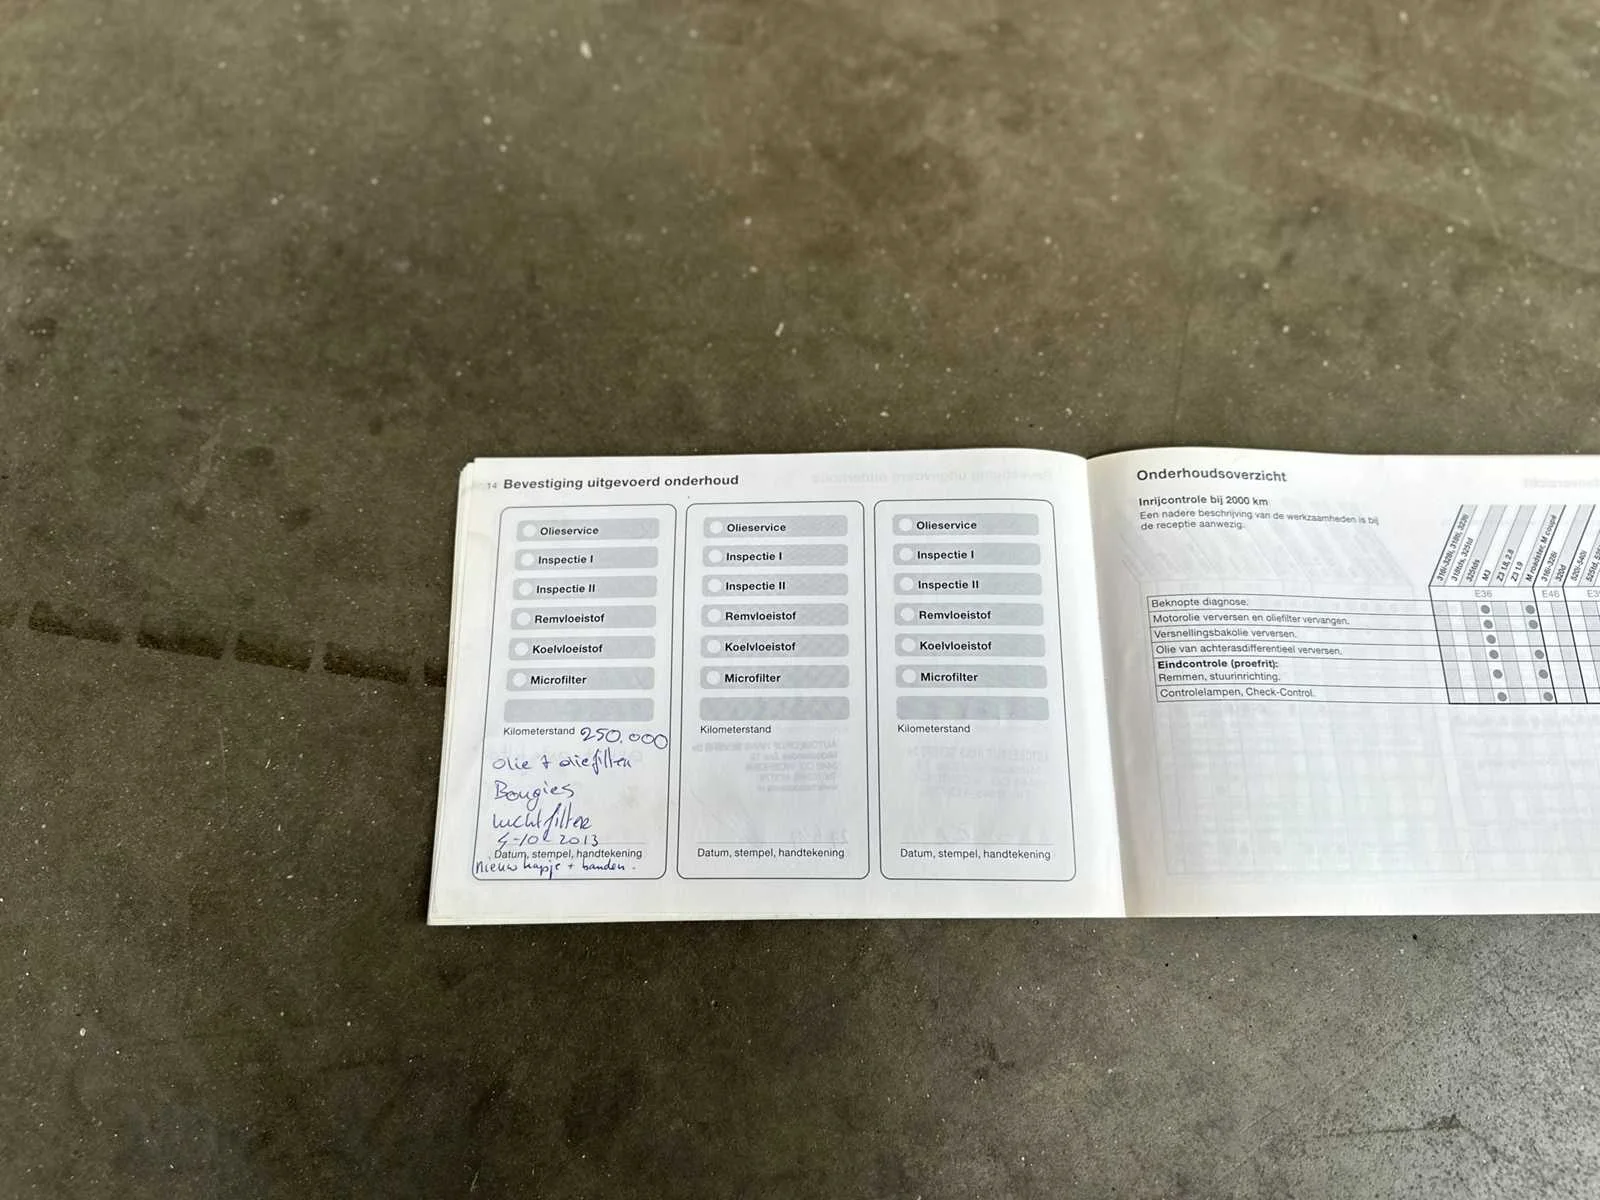 14 Bevestiging uitgevoerd onderhoud
Olieservice
Inspectie I
Inspectie II
Remvloeistof
Koelvloeistof
Microfilter
Kilometerstand 250.000
olie + oliefilter
Bougies
Luchtfilter
4-10-2013
Datum, stempel, handtekening
Nieuw kapje + banden.
Olieservice
Inspectie I
Inspectie II
Remvloeistof
Koelvloeistof
Microfilter
Kilometerstand
Datum, stempel, handtekening
Olieservice
Inspectie I
Inspectie II
Remvloeistof
Koelvloeistof
Microfilter
Kilometerstand
Datum, stempel, handtekening
Onderhoudsoverzicht
Inrijcontrole bij 2000 km
Een nadere beschrijving van de werkzaamheden is bij
de receptie aanwezig.
316i-328i, 318ti, 323ti
318tds, 325td
325tds
M3
Z3 1.8, 2.8
Z3 1.9
M roadster, M coupé
316i-328i
320d
520i-540i
E36
E46
Beknopte diagnose.
Motorolie verversen en oliefilter vervangen.
Versnellingsbakolie verversen.
Olie van achterasdifferentieel verversen.
Eindcontrole (proefrit):
Remmen, stuurinrichting.
Controlelampen, Check-Control.